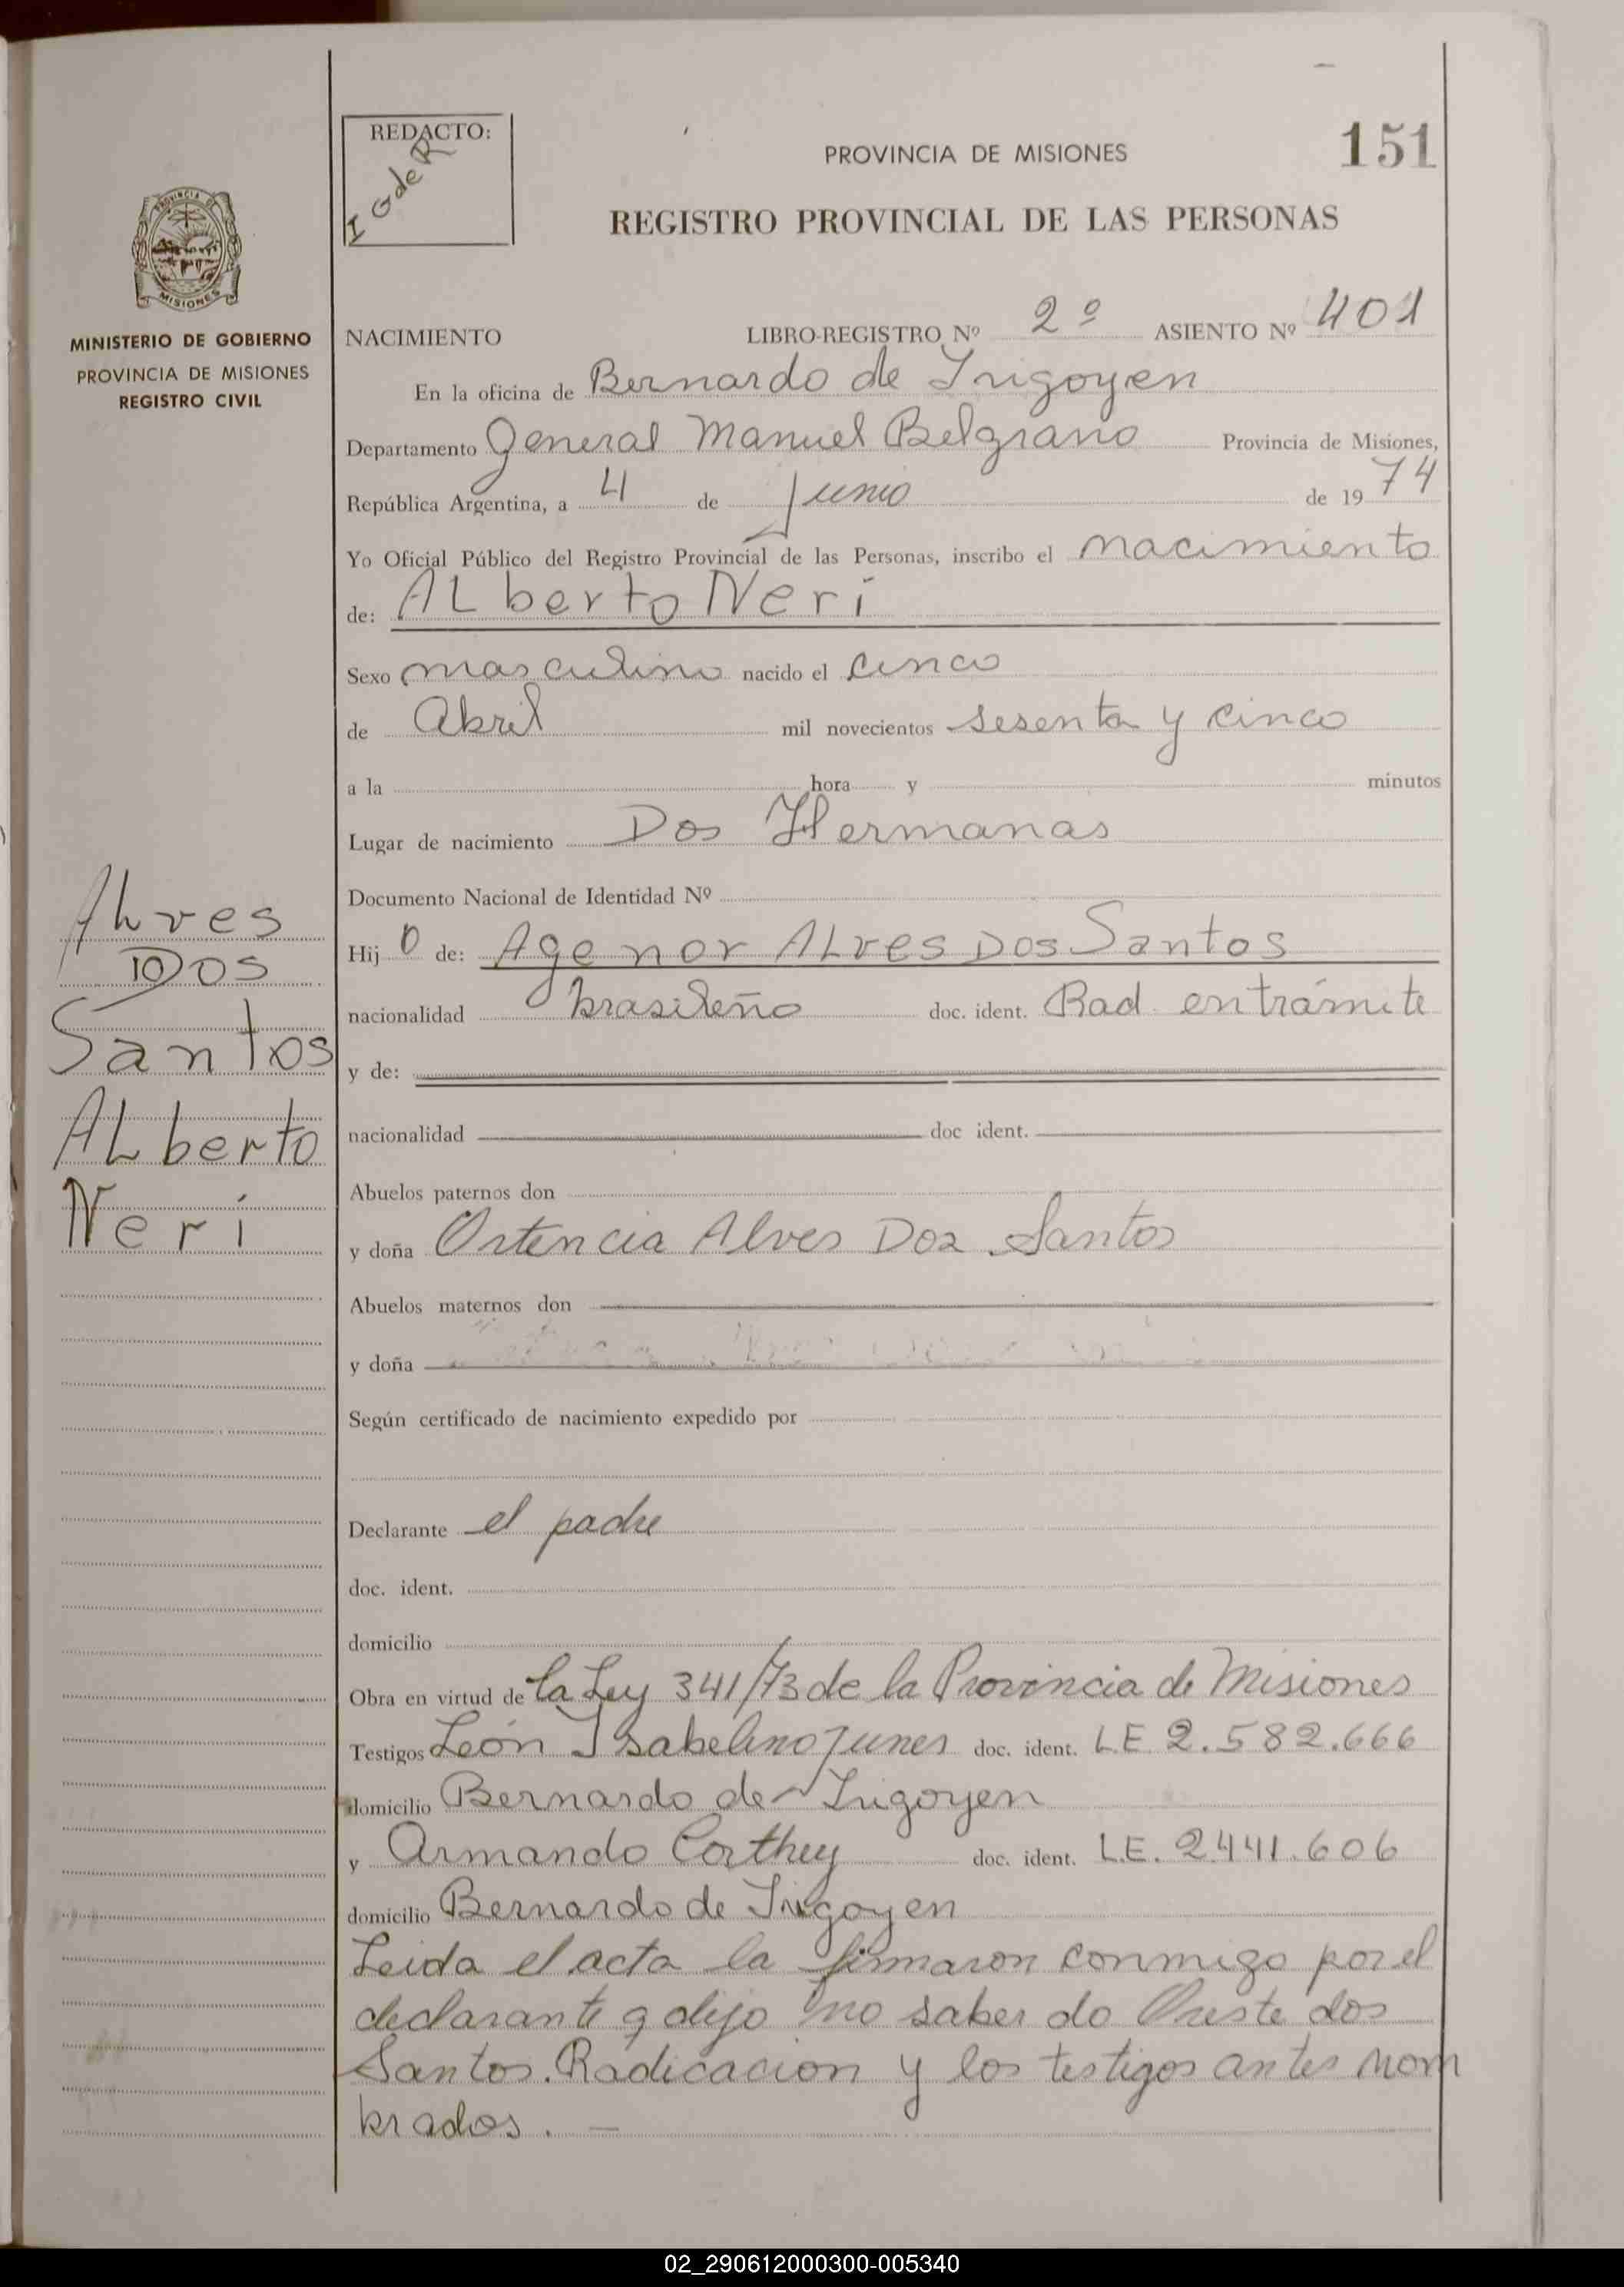 REDACTO:
I G de R
PROVINCIA DE MISIONES
151
REGISTRO PROVINCIAL DE LAS PERSONAS
PROVINCIA DE
MISIONES
MINISTERIO DE GOBIERNO
PROVINCIA DE MISIONES
REGISTRO CIVIL
NACIMIENTO LIBRO-REGISTRO Nº 2º ASIENTO Nº 401
En la oficina de Bernardo de Irigoyen
Departamento General Manuel Belgrano Provincia de Misiones,
República Argentina, a 4 de Junio de 1974
Yo Oficial Público del Registro Provincial de las Personas, inscribo el nacimiento
de: ALberto Neri
Sexo masculino nacido el cinco
de Abril mil novecientos sesenta y cinco
a la hora y minutos
Lugar de nacimiento Dos Hermanas
Documento Nacional de Identidad Nº
Hijo de: Agenor ALves Dos Santos
nacionalidad brasileño doc. ident. Rad. en trámite
y de:
nacionalidad doc ident.
Abuelos paternos don
y doña Ortencia Alves Dos Santos
Abuelos maternos don
y doña
Según certificado de nacimiento expedido por
Declarante el padre
doc. ident.
domicilio
Obra en virtud de la Ley 341/73 de la Provincia de Misiones
Testigos León Isabelino Junes doc. ident. L.E. 2.582.666
domicilio Bernardo de Irigoyen
y Armando Corthey doc. ident. L.E. 2.441.606
domicilio Bernardo de Irigoyen
Leida el acta la firmaron conmigo por el
declarante q dijo no saber do Oreste dos
Santos. Radicacion y los testigos antes nom
brados. —
ALves
Dos
Santos
ALberto
Neri
02_290612000300-005340